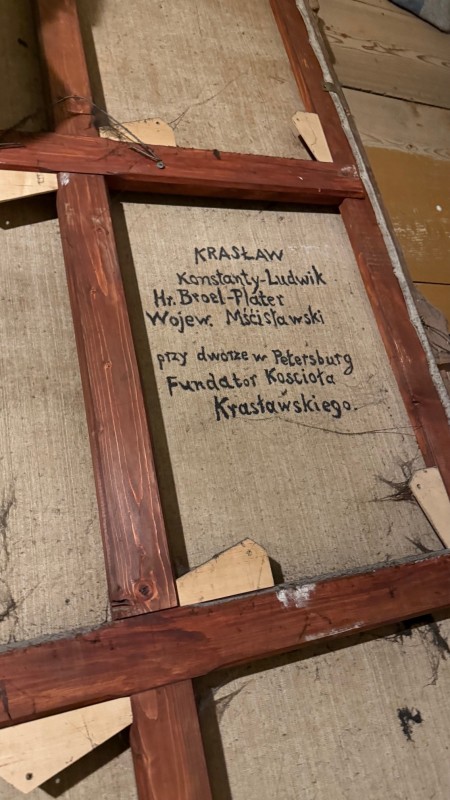 KRASŁAW
Konstanty-Ludwik
Hr. Broel-Plater
Wojew. Mścisławski
przy dworze w Petersburg
Fundator Kościoła
Krasławskiego.